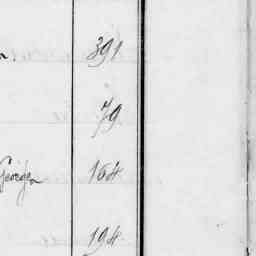 391
79
George 164
194